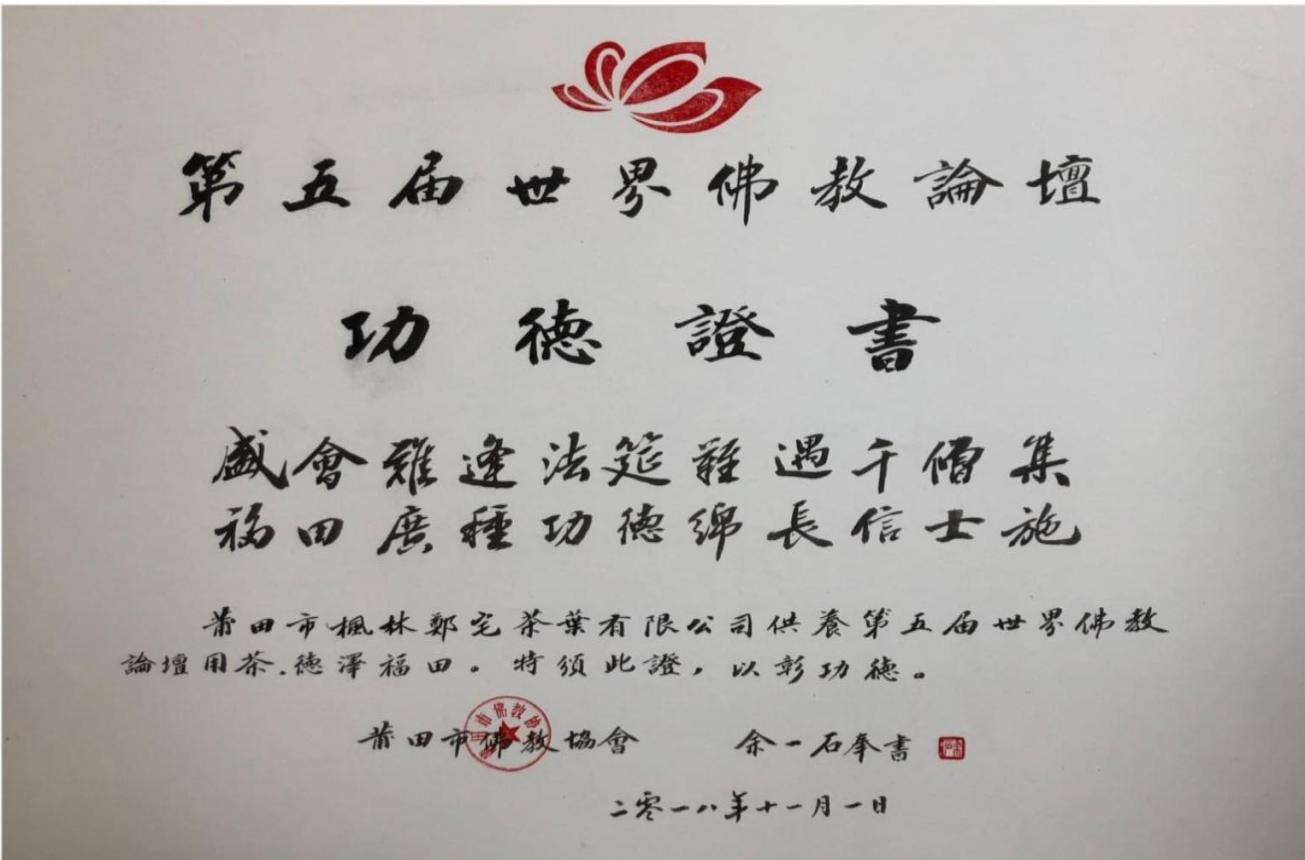 第五届世界佛教論壇
功德證書
盛會難逢法筵難遇千僧集
福田廣種功德綿長信士施
莆田市楓林鄭宅茶葉有限公司供養第五届世界佛教
論壇用茶.德澤福田。特頒此證,以彰功德。
莆田市佛教協會 余一石奉書
二零一八年十一月一日